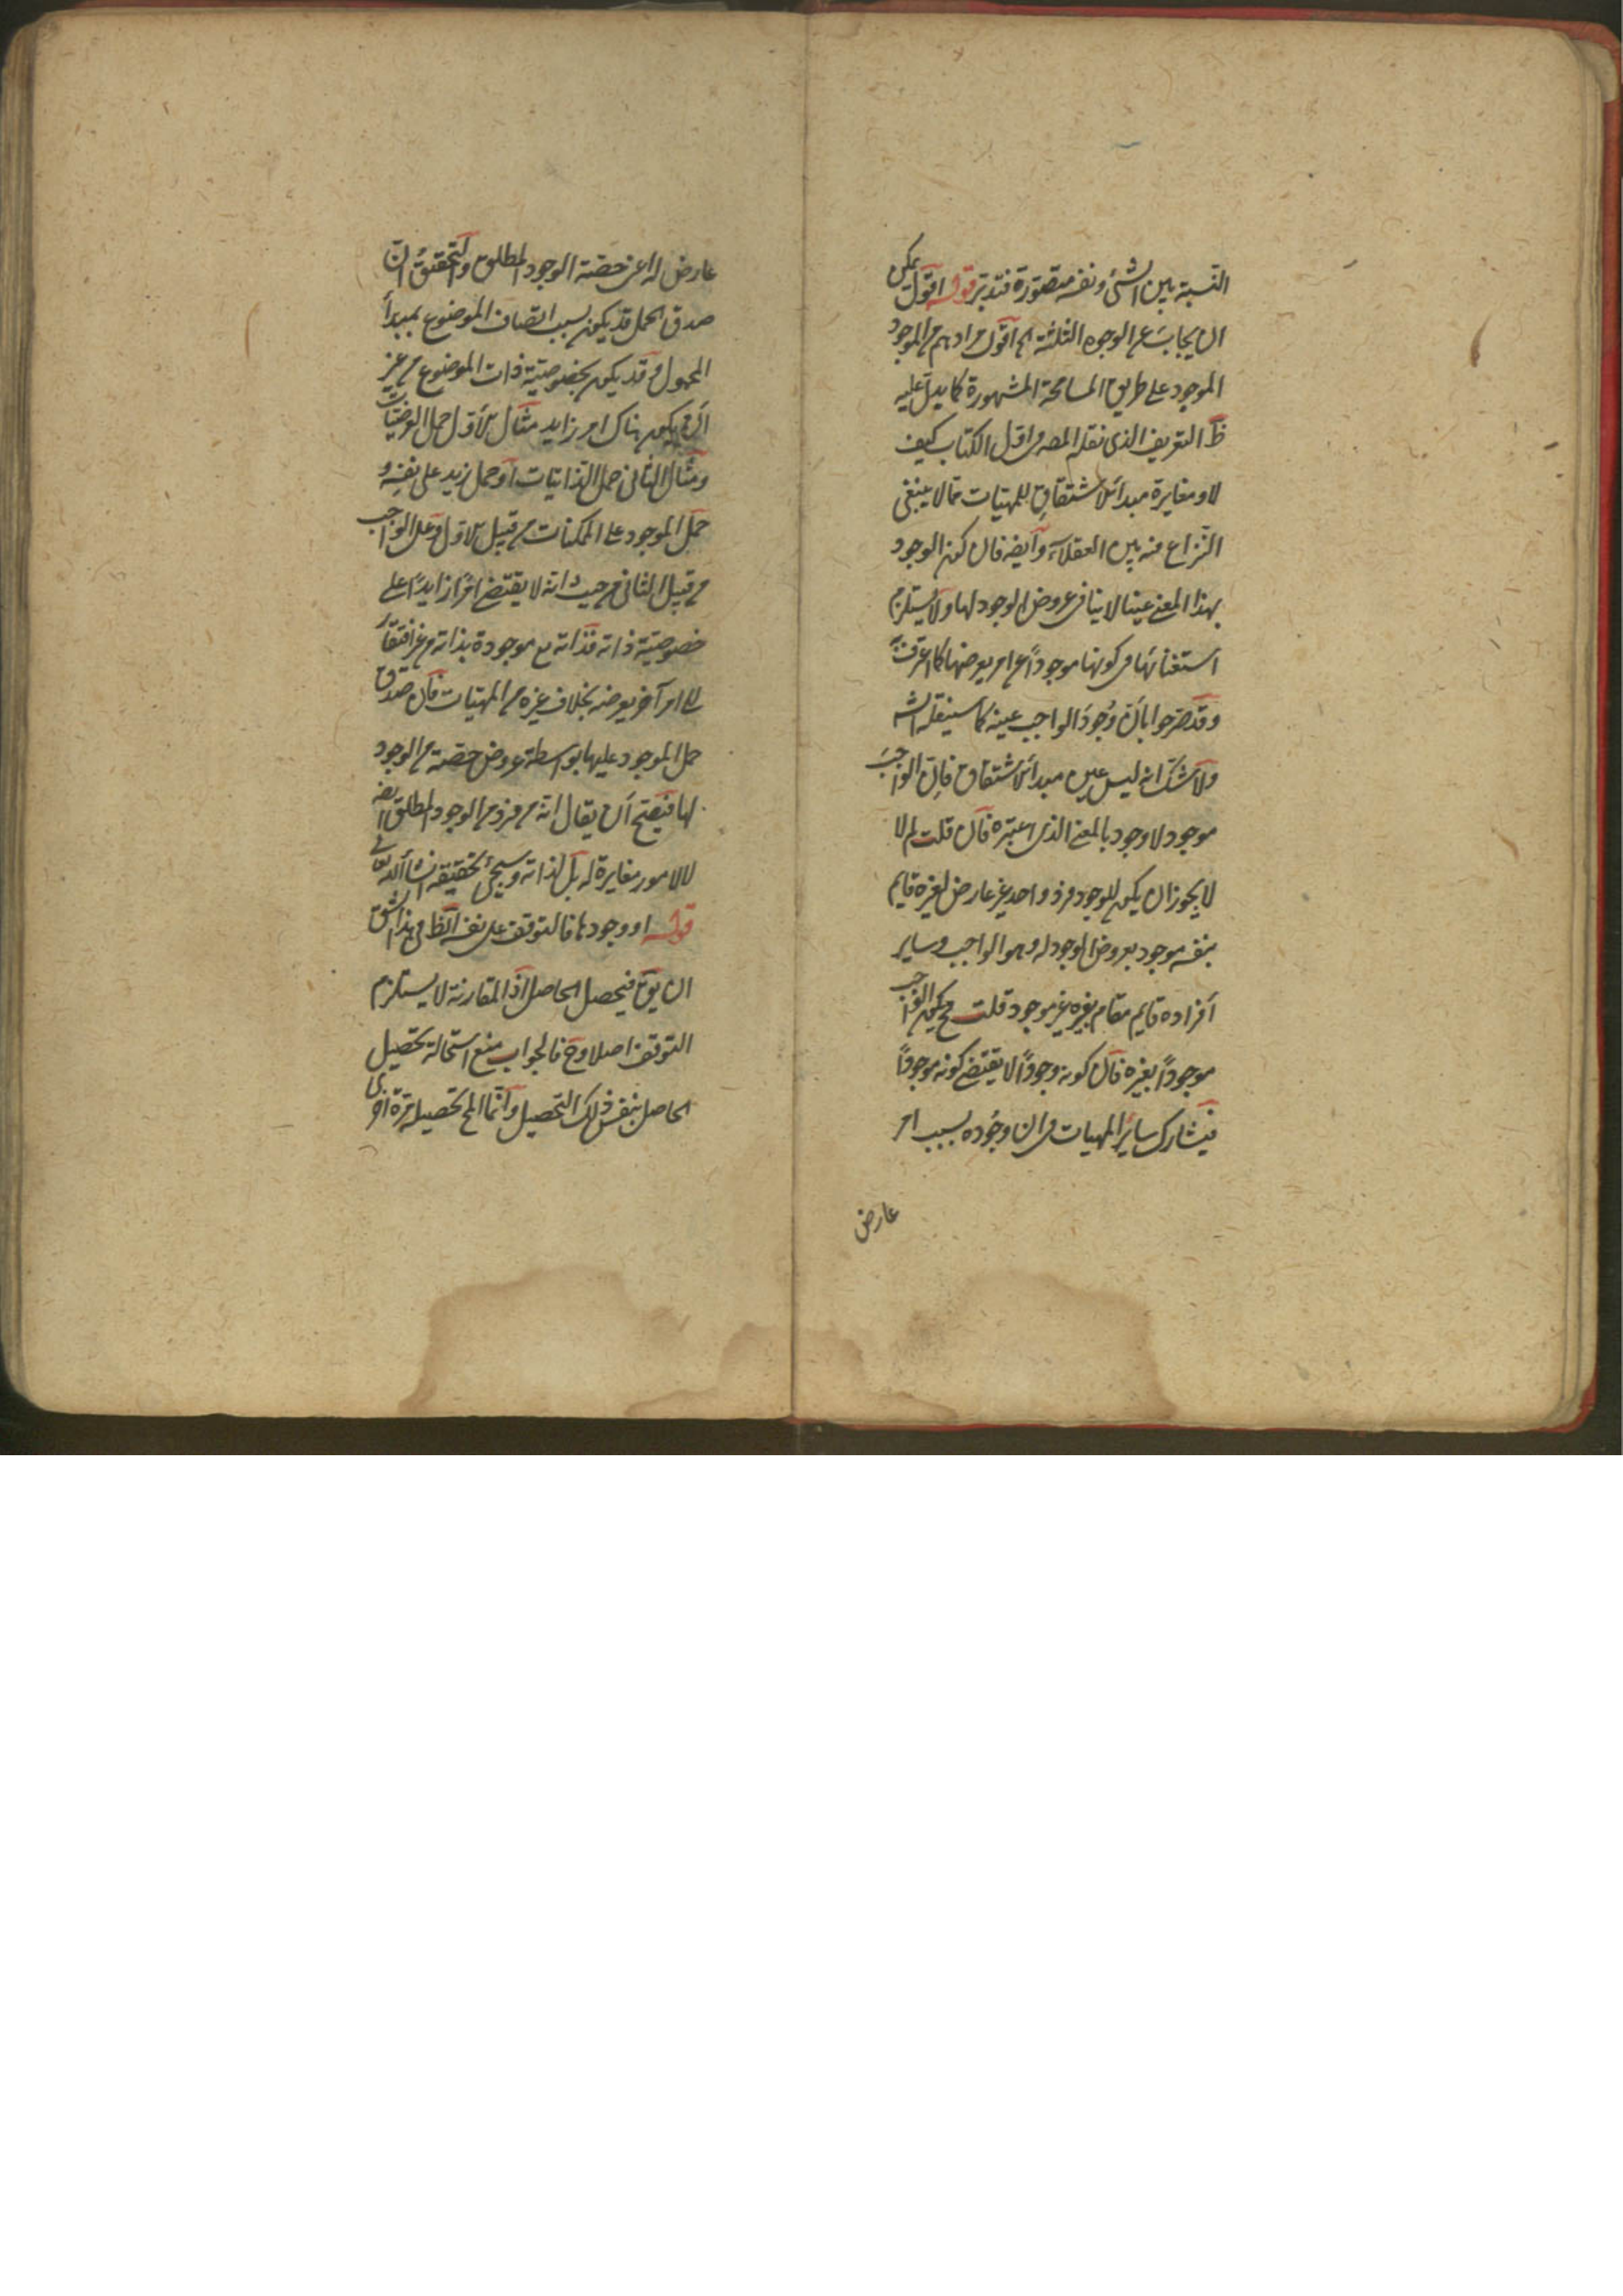 النسبة بين الشئ ونفسه متصورة فتدبر قوله اقول يمكن
ان يجاب عن الوجوه الثلثة الخ اقول مرادهم من الوجود
الموجود على طريق المسامحة المشهورة كما يدل عليه
ظ التعريف الذى نقله المصه فى اول الكتاب كيف
لا ومغايرة مبدأ الاشتقاق للمهيات مما لا ينبغى
النزاع فيه بين العقلاء وايضه فان كون الوجود
بهذا المعنى عينا لا ينافى عروض الوجود لها ولا يستلزم
استغنائها فى كونها موجوداً عن امر يعرضها كما عرفت
وقد صرحوا بأن وجود الواجب عينه كما سينقله الشه
ولا شك انه ليس عين مبدأ الاشتقاق فان الواجب
موجود لا وجود بالمعنى الذى اعتبره فان قلت لم لا
لا يجوز ان يكون للوجود فرد واحد غير عارض لغيره قايم
بنفسه موجود بعروض الوجود له وهو الواجب وساير
أفراده قايم مقام بغيره غير موجود قلت فح يكون الواجب
موجوداً بغيره فان كونه وجوداً لا يقتضى كونه موجوداً
فيشارك ساير المهيات فى ان وجوده بسبب امر
عارض
عارض له اعنى حصة الوجود المطلق والتحقيق ان
صدق الحمل قد يكون بسبب اتصاف الموضوع بمبدأ
المحمول وقد يكون بخصوصية ذات الموضوع من غير
أن يكون هناك امر زايد مثال الأول حمل العرضيات
ومثال الثانى حمل الذاتيات أو حمل زيد على نفسه و
حمل الموجود على الممكنات من قبيل الاول وعلى الواجب
من قبيل الثانى من حيث انه لا يقتضى امراً زايداً على
خصوصية ذاته فذاته مع موجودة بذاته من غير افتقار
الى امر آخر يعرضه بخلاف غيره من المهيات فان صدق
حمل الموجود عليها بواسطة عروض حصة من الوجود
لها فيصح أن يقال انه من فرد من الوجود المطلق ايضه
لا لامور مغايرة له بل لذاته وسيجئ تحقيقه انشاء الله تعالى
قوله او وجودها فالتوقف على نفسه الظ فى هذا الشق
ان يقال فيحصل الحاصل اذ المقارنة لا يستلزم
التوقف اصلا وح فالجواب منع استحالة تحصيل
الحاصل بنفس ذلك التحصيل وانما المح تحصيله مرة اخرى